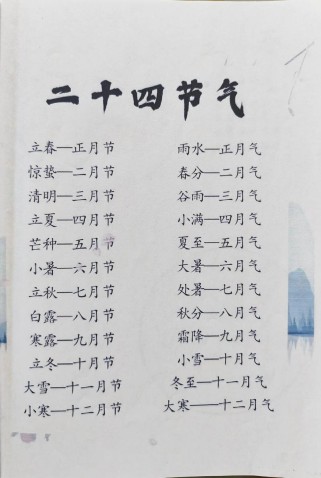 二十四节气
立春—正月节 雨水—正月气
惊蛰—二月节 春分—二月气
清明—三月节 谷雨—三月气
立夏—四月节 小满—四月气
芒种—五月节 夏至—五月气
小暑—六月节 大暑—六月气
立秋—七月节 处暑—七月气
白露—八月节 秋分—八月气
寒露—九月节 霜降—九月气
立冬—十月节 小雪—十月气
大雪—十一月节 冬至—十一月气
小寒—十二月节 大寒—十二月气